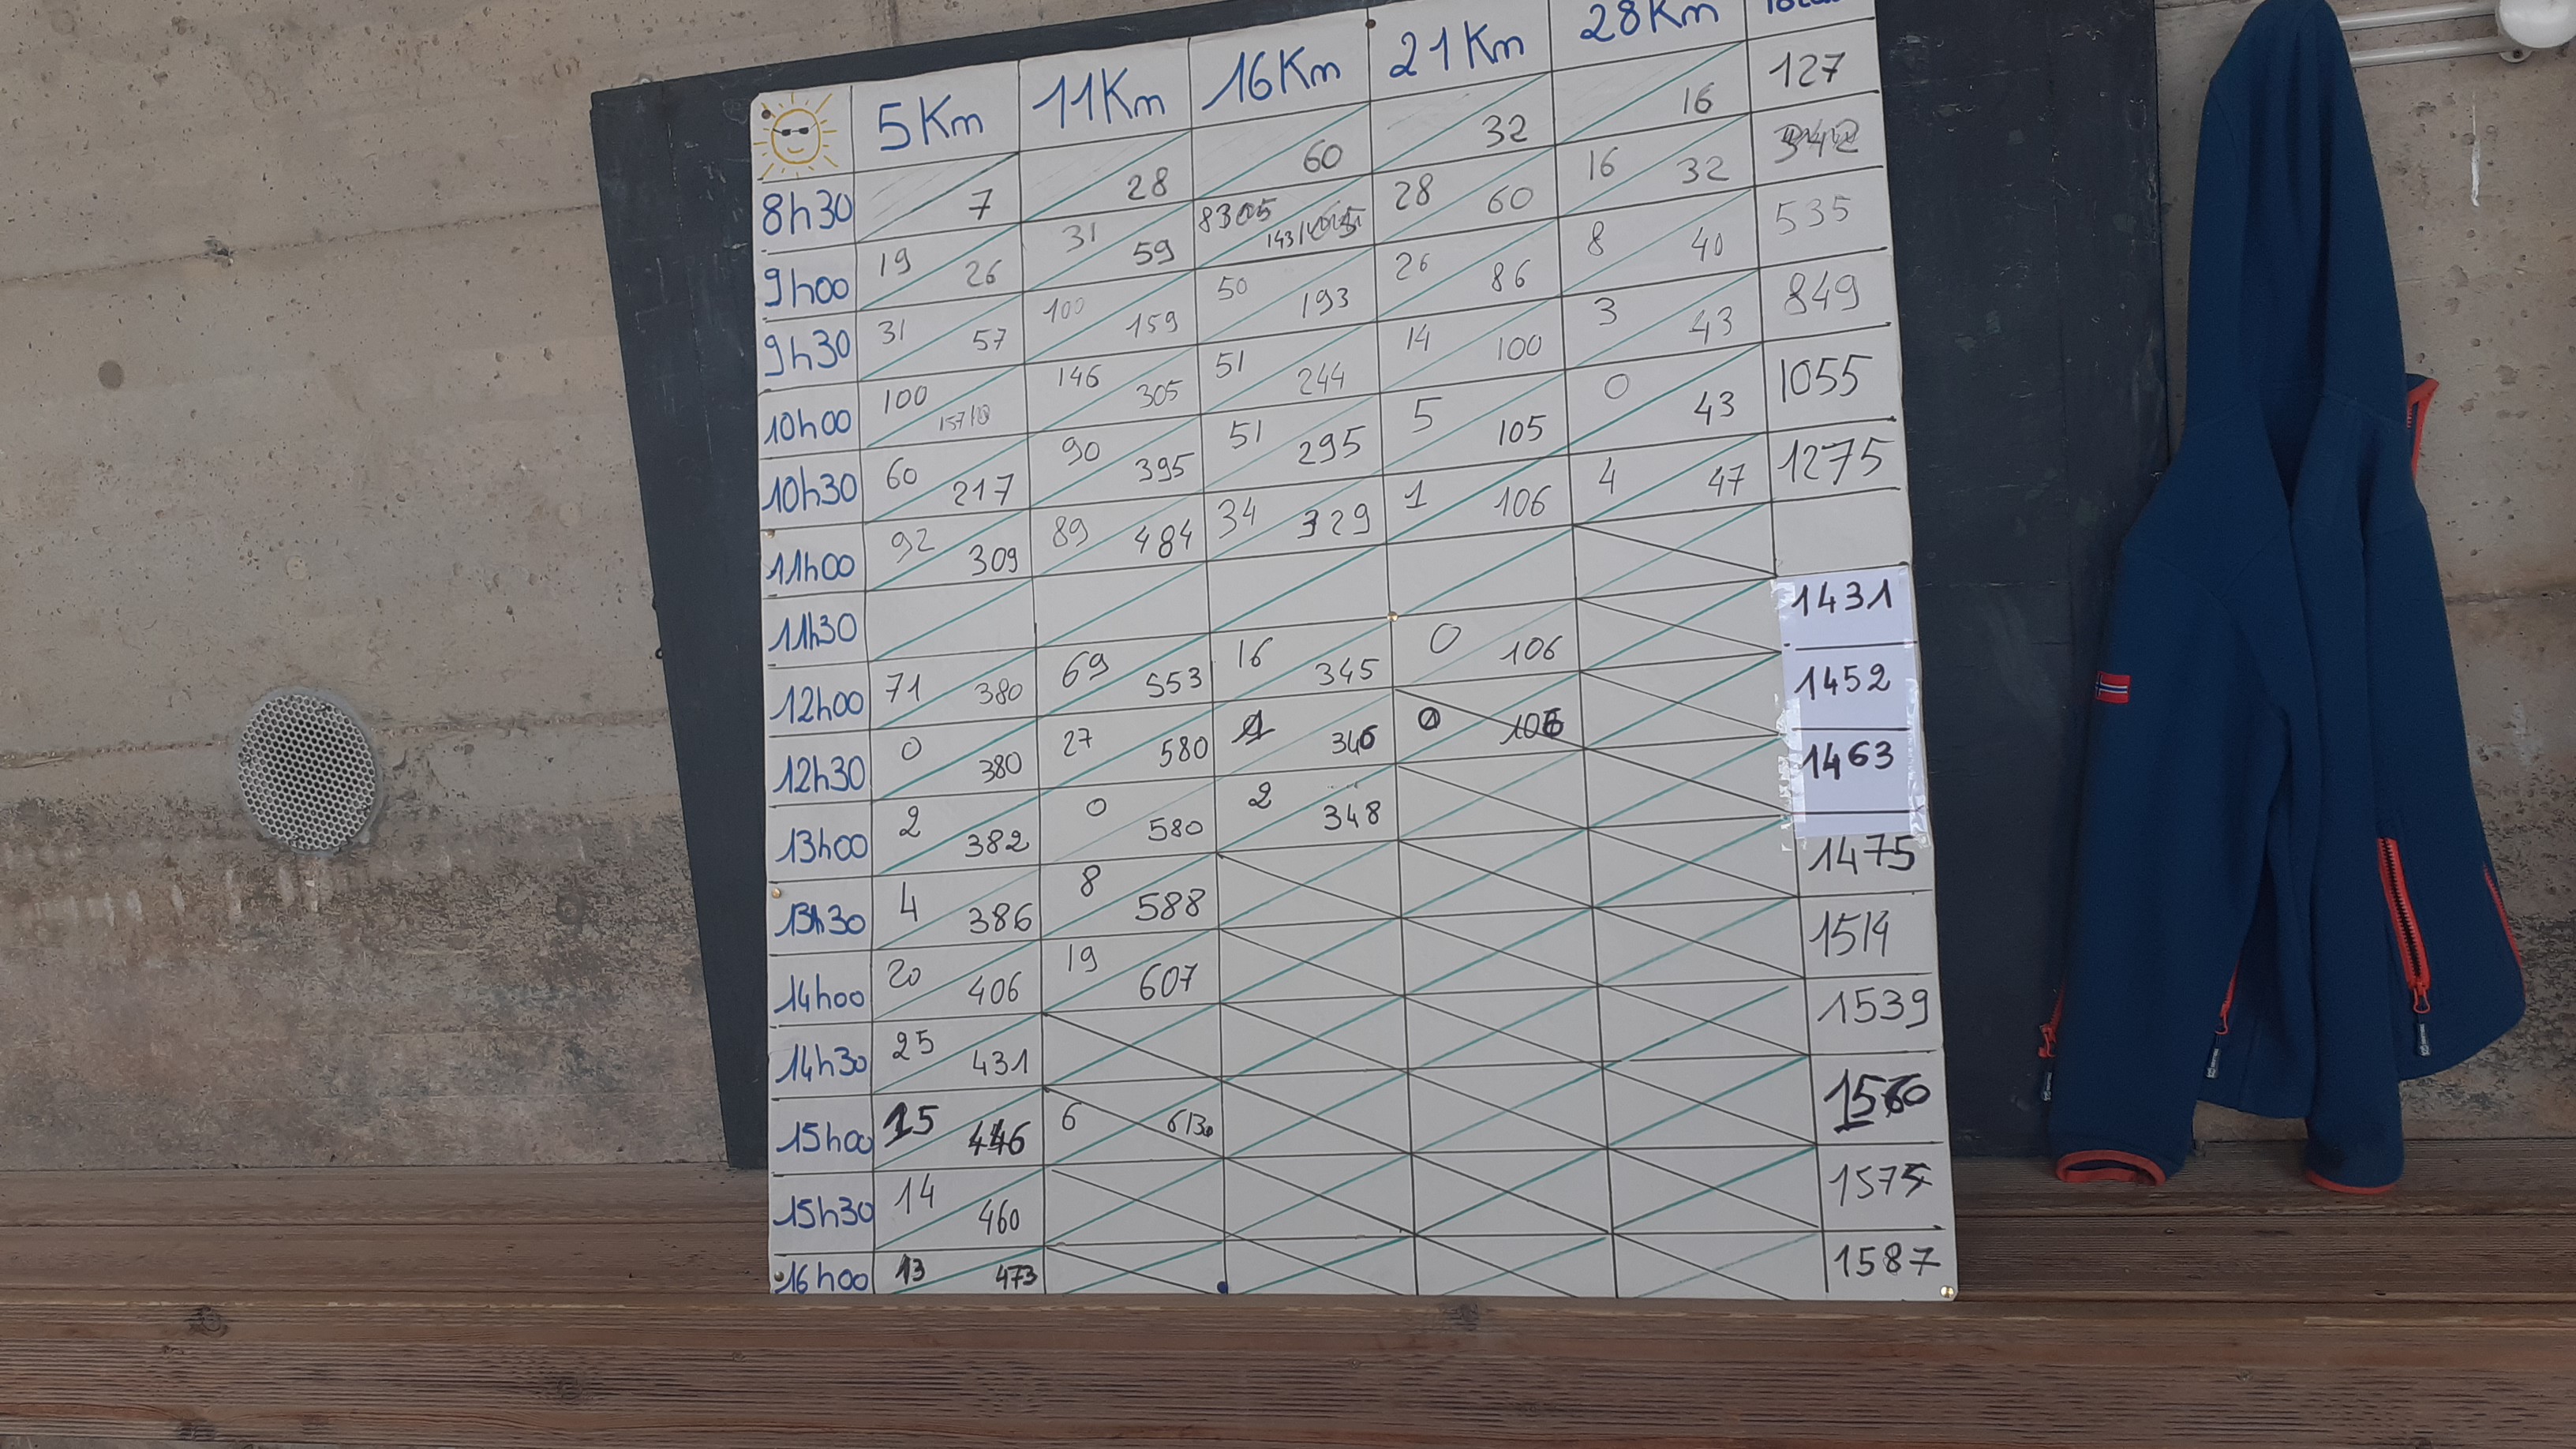 5Km 11Km 16Km 21Km 28Km
8h30 7 28 60 32 16 127
9h00 19 26 31 59 28 60 16 32
9h30 31 57 100 159 50 193 26 86 8 40 535
10h00 100 146 305 51 244 14 100 3 43 849
10h30 60 217 90 395 51 295 5 105 0 43 1055
11h00 92 309 89 484 34 329 1 106 4 47 1275
11h30
12h00 71 380 69 553 16 345 0 106 1431
12h30 0 380 27 580 1 346 0 106 1452
13h00 2 382 0 580 2 348 1463
13h30 4 386 8 588 1475
14h00 20 406 19 607 1514
14h30 25 431 1539
15h00 15 446 6 613 1560
15h30 14 460 1575
16h00 13 473 1587